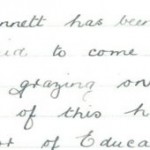 nnett has been
to come
grazing on
of this h
of Educa